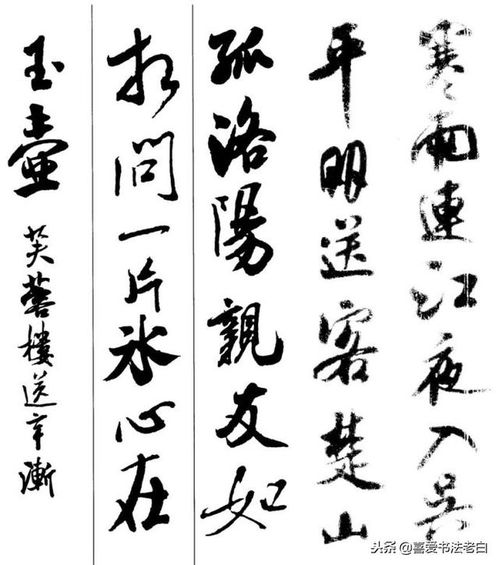 寒雨連江夜入吴
平明送客楚山
孤洛陽親友如
相問一片冰心在
玉壺 芙蓉樓送辛漸
头条@喜爱书法老白